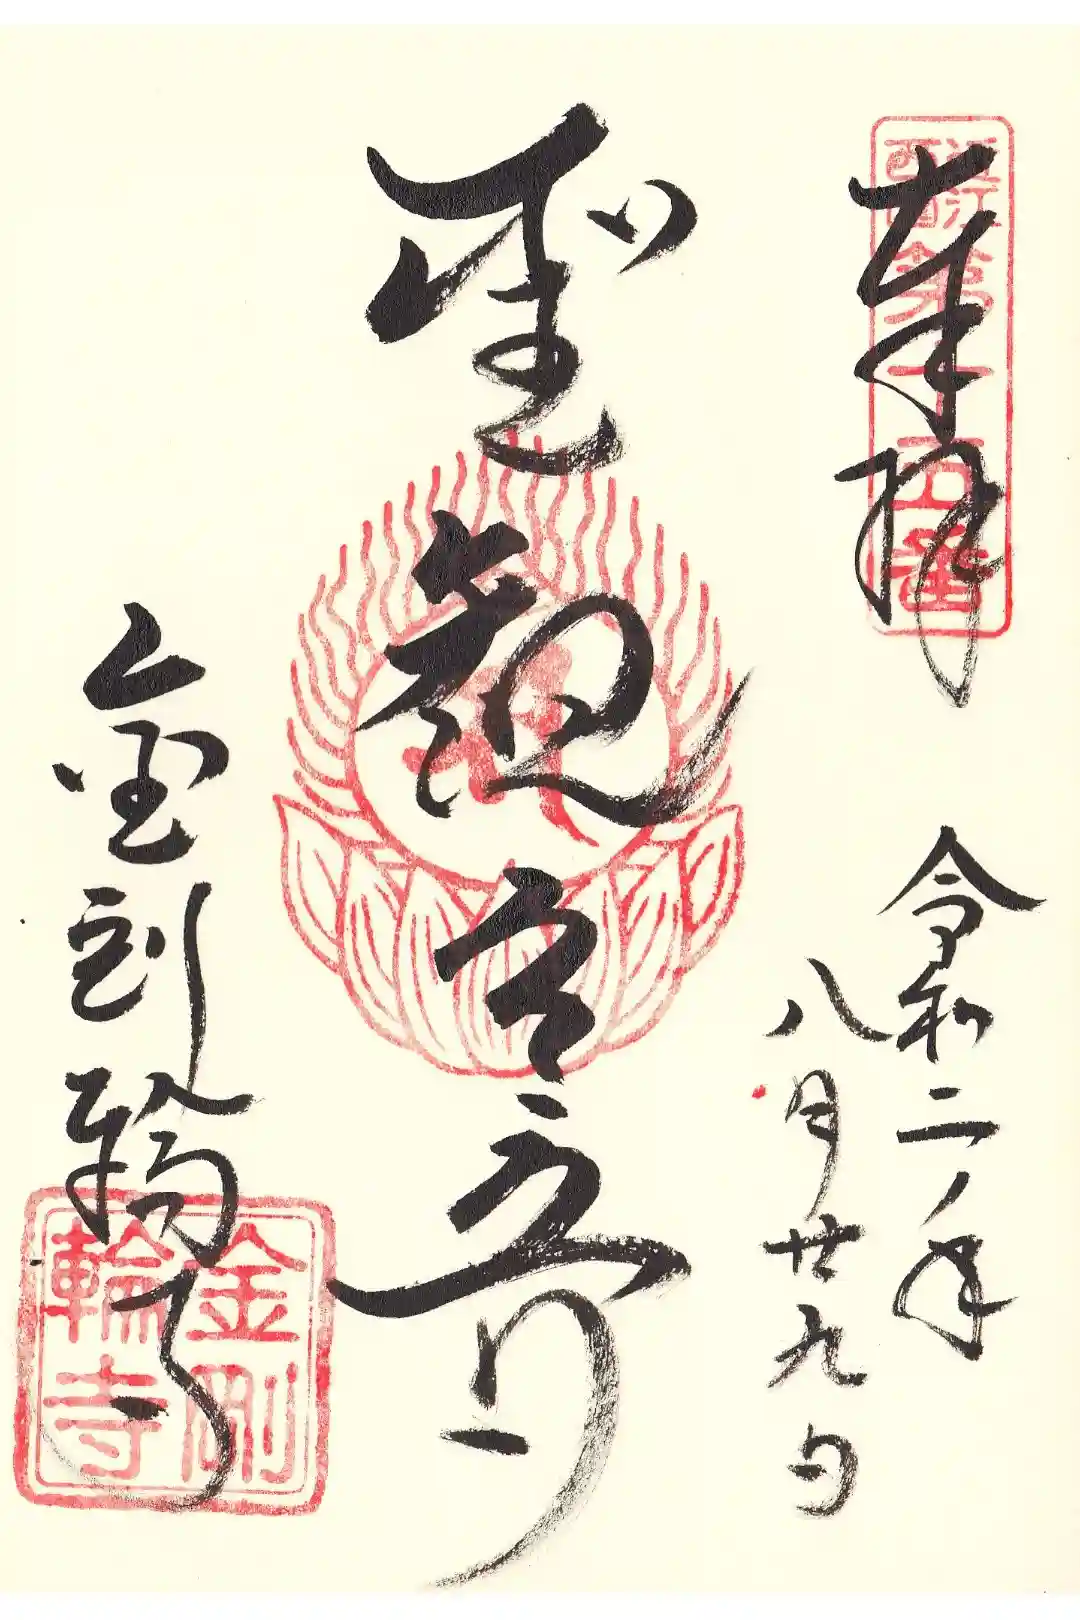 近江
西国
第十五番
奉拝
令和二年
八月廿九日
聖観世音
金剛輪寺
金剛
輪寺